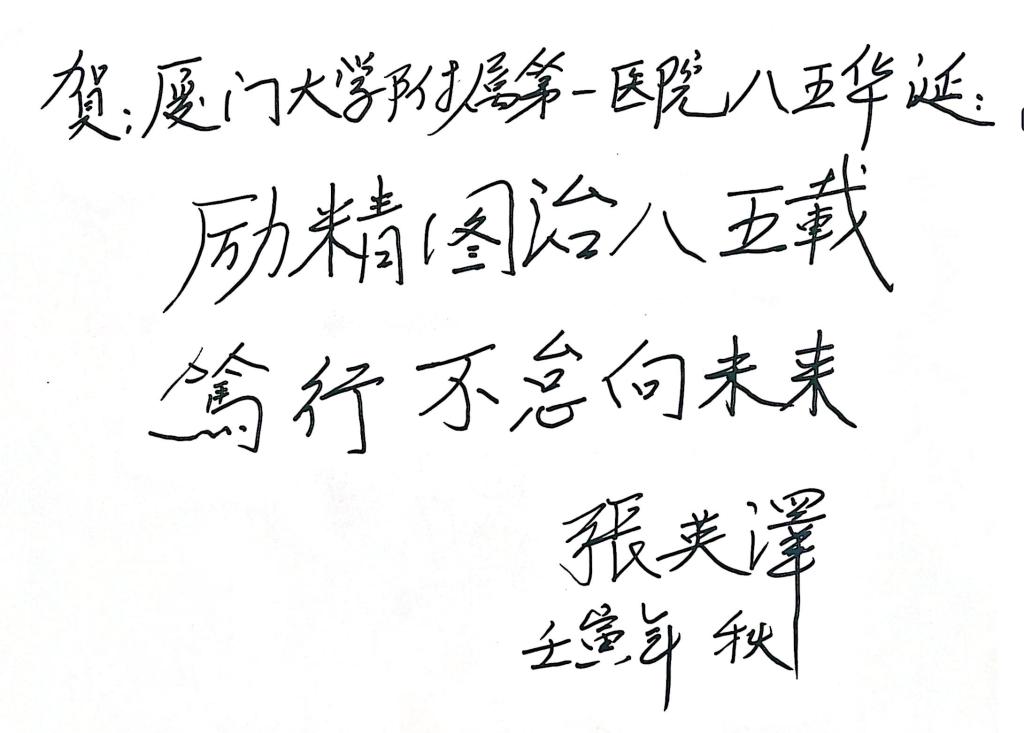 賀:厦门大学附属第一医院八五华诞:
励精图治八五載
篤行不怠向未来
張英澤
壬寅年 秋